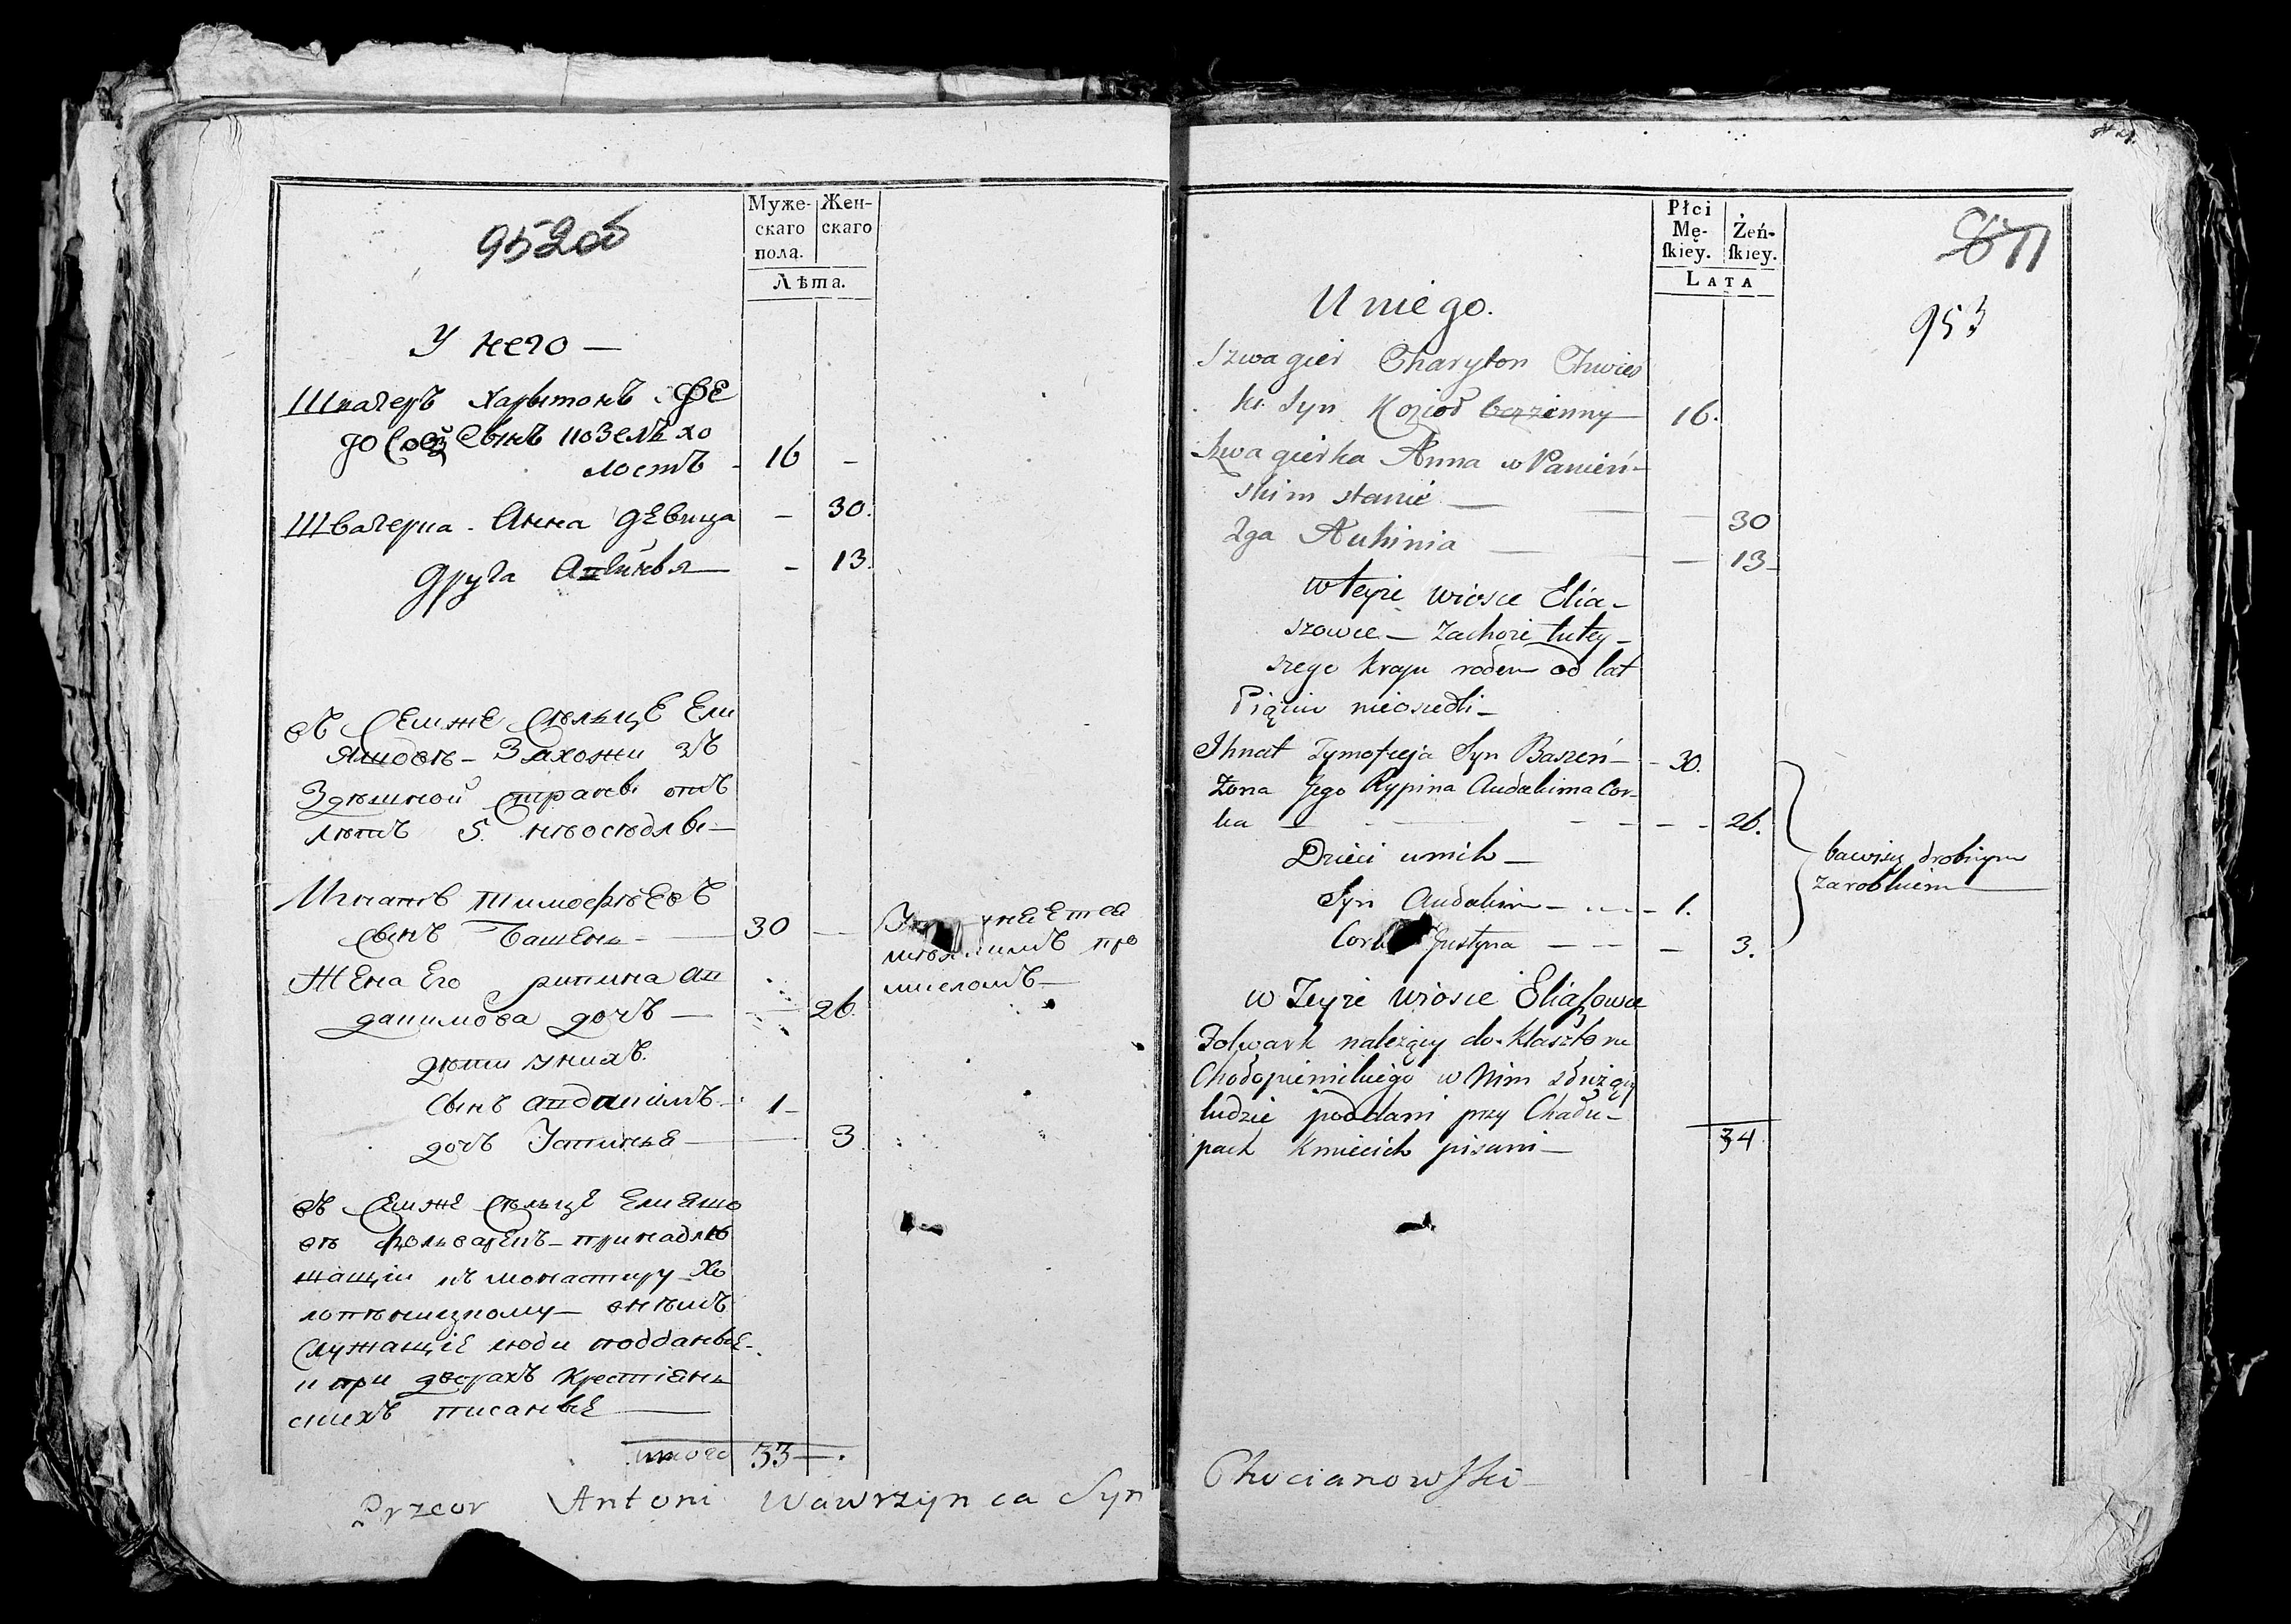 952об
Муже-
скаго
пола.
Жен-
скаго
Лѣта.
У него —
Швагеръ Харытонъ Фе
сынъ козелъ хо
лостъ - 16 -
Швагерка - Анна девица - 30.
друга - 13.
въ Семже Сельце Ели
яшовъ - Захожи зъ
Здешной страны отъ
летъ 5. неоседлы —
Игнатъ Тимофеевъ
сынъ Башень - 30 —
Жена Его рипина ав
дакимова дочъ — 26.
дети у нихъ.
сынъ авдакимъ - 1 -
дочъ Устинья — 3
мелкимъ про
мисломъ —
въ Семже Сельце Елияшо
въ фольварекъ - принадле
жащiи къ монастиру Хо
лопеницкому — внемъ
служащiе люди подданые -
и при дворахъ крестiянь
скихъ писаные —
итого 33 — .
Przeor Antoni Wawrzynca Syn
Chocianowski
Płci
Mę-
ſkiey.
Żeń-
ſkiey.
LATA
871
953
U niego.
Szwagier Charyton Chwied
ki Syn Kozioł 16.
Szwagierka Anna w Panień-
skim stanie — 30
2ga Auhinia — 13 -
w teyże wiosce Elia-
szowce — Zachoże tutey-
szego kraju rodem od lat
Piąciu nieosiedli —
Ihnat Tymofieja Syn Baszeń - 30.
Żona Jego Rypina Audakima Cor-
ka — 26.
Dzieci u nich —
Syn Audakim - 1.
Justyna — 3.
bawiący drobnym
zarobkiem —
w Teyże wiosce Eliaſzowce
Folwark należący do Klasztoru
Chołopienickiego w Nim służący
ludzie poddani przy Chału-
pach Kmiecich pisani —
34